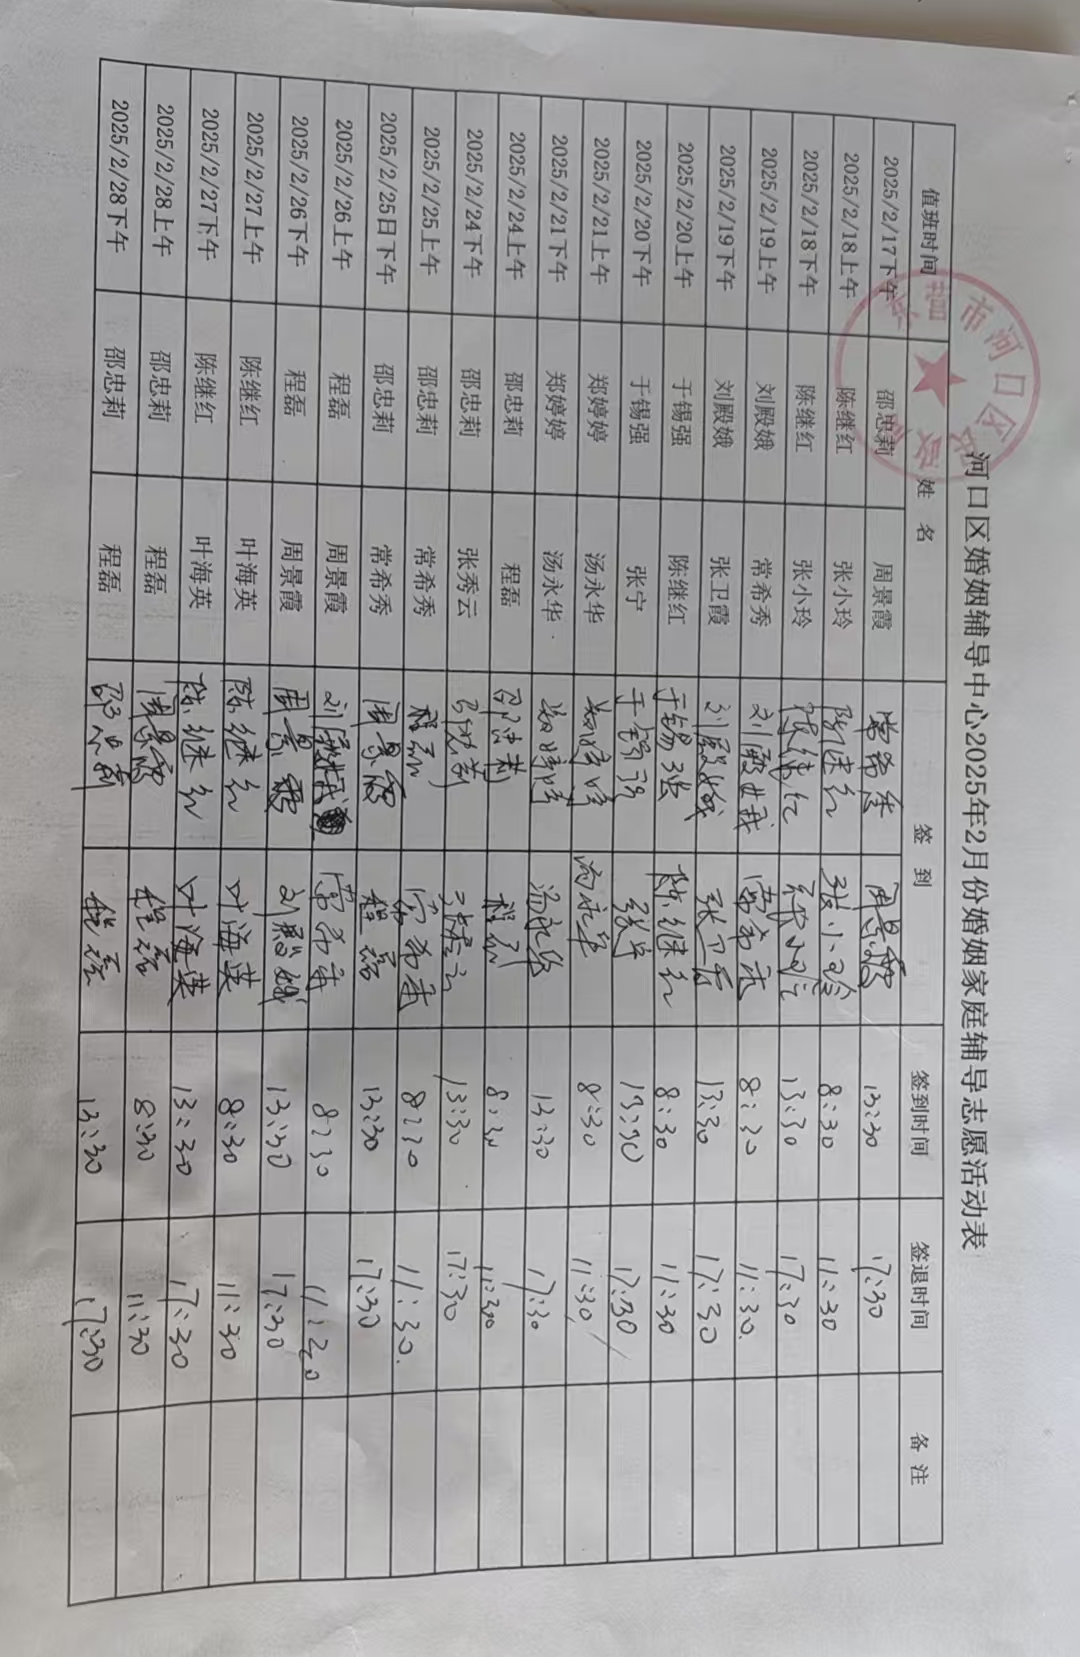 河口区婚姻辅导中心2025年2月份婚姻家庭辅导志愿活动表
值班时间 姓 名 签 到 签到时间 签退时间 备 注
2025/2/17下午 邵忠莉 周景霞 常希秀 周景霞 13:30 17:30
2025/2/18上午 陈继红 张小玲 陈继红 张小玲 8:30 11:30
2025/2/18下午 陈继红 张小玲 陈继红 张小玲 13:30 17:30
2025/2/19上午 刘殿娥 常希秀 刘殿娥 常希秀 8:30 11:30.
2025/2/19下午 刘殿娥 张卫霞 刘殿娥 张卫霞 13:30 17:30
2025/2/20上午 于锡强 陈继红 于锡强 陈继红 8:30 11:30
2025/2/20下午 于锡强 张宁 于锡强 张宁 13:30 17:30
2025/2/21上午 郑婷婷 汤永华 郑婷婷 汤永华 8:30 11:30
2025/2/21下午 郑婷婷 汤永华 郑婷婷 汤永华 13:30 17:30
2025/2/24上午 邵忠莉 程磊 邵忠莉 程磊 8:30 11:30
2025/2/24下午 邵忠莉 张秀云 邵忠莉 张秀云 13:30 17:30
2025/2/25上午 邵忠莉 常希秀 程磊 常希秀 8:30 11:30.
2025/2/25日下午 邵忠莉 常希秀 周景霞 程磊 13:30 17:30
2025/2/26上午 程磊 周景霞 刘殿娥 常希秀 8:30 11:20
2025/2/26下午 程磊 周景霞 周景霞 刘殿娥 13:30 17:30
2025/2/27上午 陈继红 叶海英 陈继红 叶海英 8:30 11:30
2025/2/27下午 陈继红 叶海英 陈继红 叶海英 13:30 17:30
2025/2/28上午 邵忠莉 程磊 周景霞 程磊 8:30 11:30
2025/2/28下午 邵忠莉 程磊 邵忠莉 程磊 13:30 17:30
市河口区民政